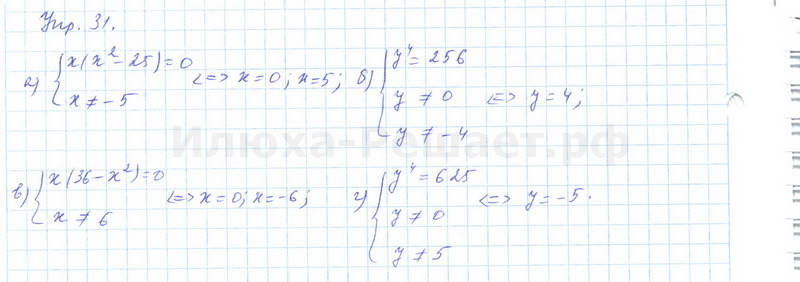 Упр. 31.
а) { x(x² – 25) = 0
x ≠ –5
<=> x = 0; x = 5;
б) { y⁴ = 256
y ≠ 0
y ≠ –4
<=> y = 4;
Илюха-Решает.рф
в) { x(36 – x²) = 0
x ≠ 6
<=> x = 0; x = –6;
г) { y⁴ = 625
y ≠ 0
y ≠ 5
<=> y = –5.